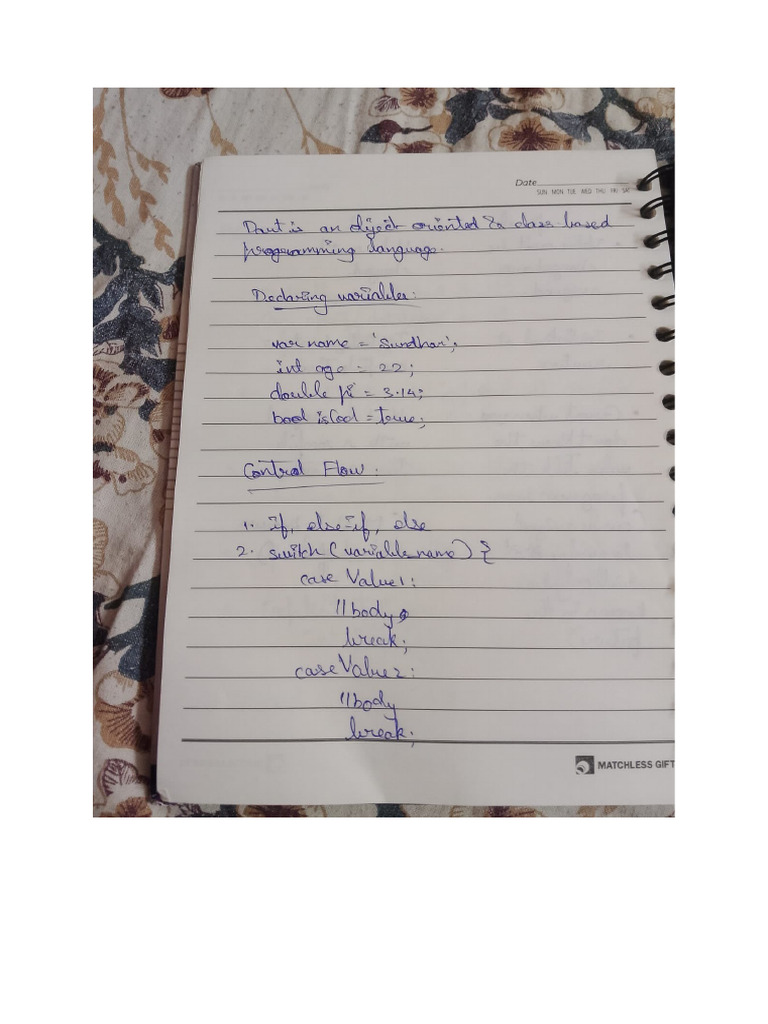 Date
SUN MON TUE WED THU FRI SAT
Dart is an object oriented & class based
programming language.
Declaring variables:
var name = 'Sundhar';
int age = 22;
double pi = 3.14;
bool isCool = true;
Control Flow:
1. if, else-if, else
2. switch (variable_name) {
case Value1:
//body
break;
case Value2:
//body
break;
MATCHLESS GIFT